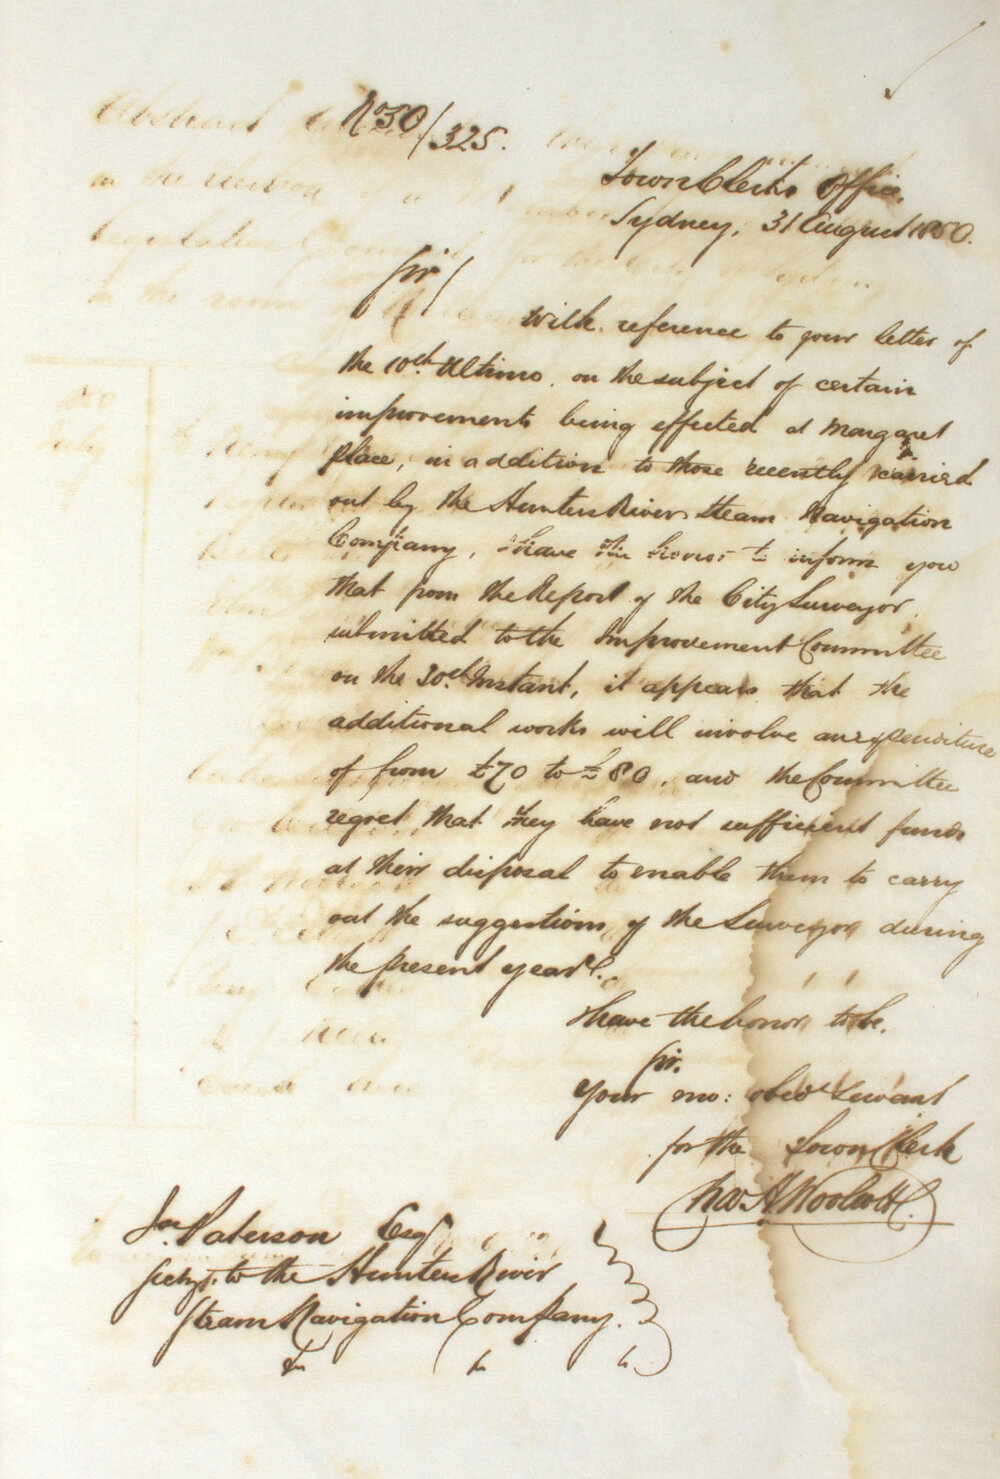 No 50/325.
Town Clerk's Office,
Sydney, 31 August 1850.
Sir/
With reference to your letter of
the 10th Ultimo, on the subject of certain
improvements being effected at Margaret
Place, in addition to those recently carried
out by the Hunter River Steam Navigation
Company, I have the honor to inform you
that from the Report of the City Surveyor,
submitted to the Improvement Committee
on the 20th Instant, it appears that the
additional works will involve an expenditure
of from £70 to £80, and the Committee
regret that they have not sufficient funds
at their disposal to enable them to carry
out the suggestions of the Surveyor during
the present year.
I have the honor to be,
Sir,
Your mo: obedt Servant
for the Town Clerk
A. Woolcott
Jas Paterson Esqr
Secty. to the Hunter River
Steam Navigation Company.
Abstract
in the
Legislative
in the room